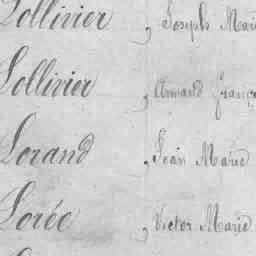 Lollivier , Joseph Marie
Lollivier , Armand Franço
Lorand , Jean Marie
Lorée , Victor Marie